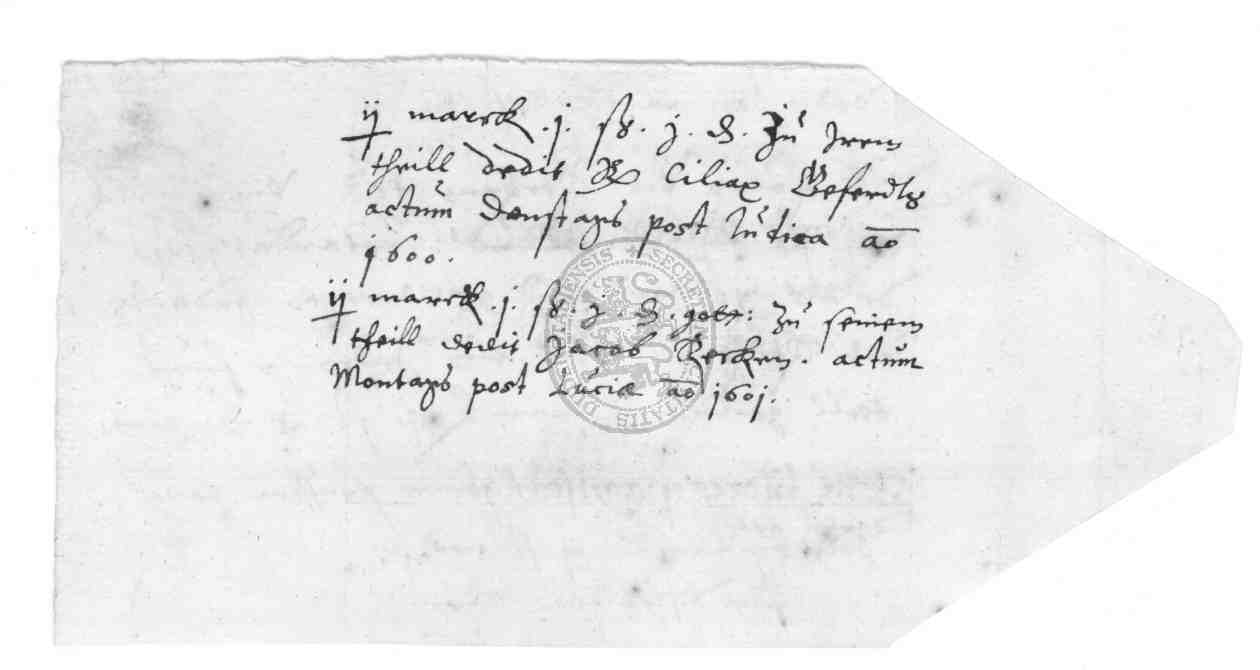 ij marck .j. ß. j. d. Zu Irem
theill dedit Ciliax
actum Denstags post Lucia ao
1600.
ij marck .j. ß. j d. gott: Zu seinem
theill dedit Jacob Becken. actum
Montags post Luciæ ao 1601.
SECRET CIVITATIS